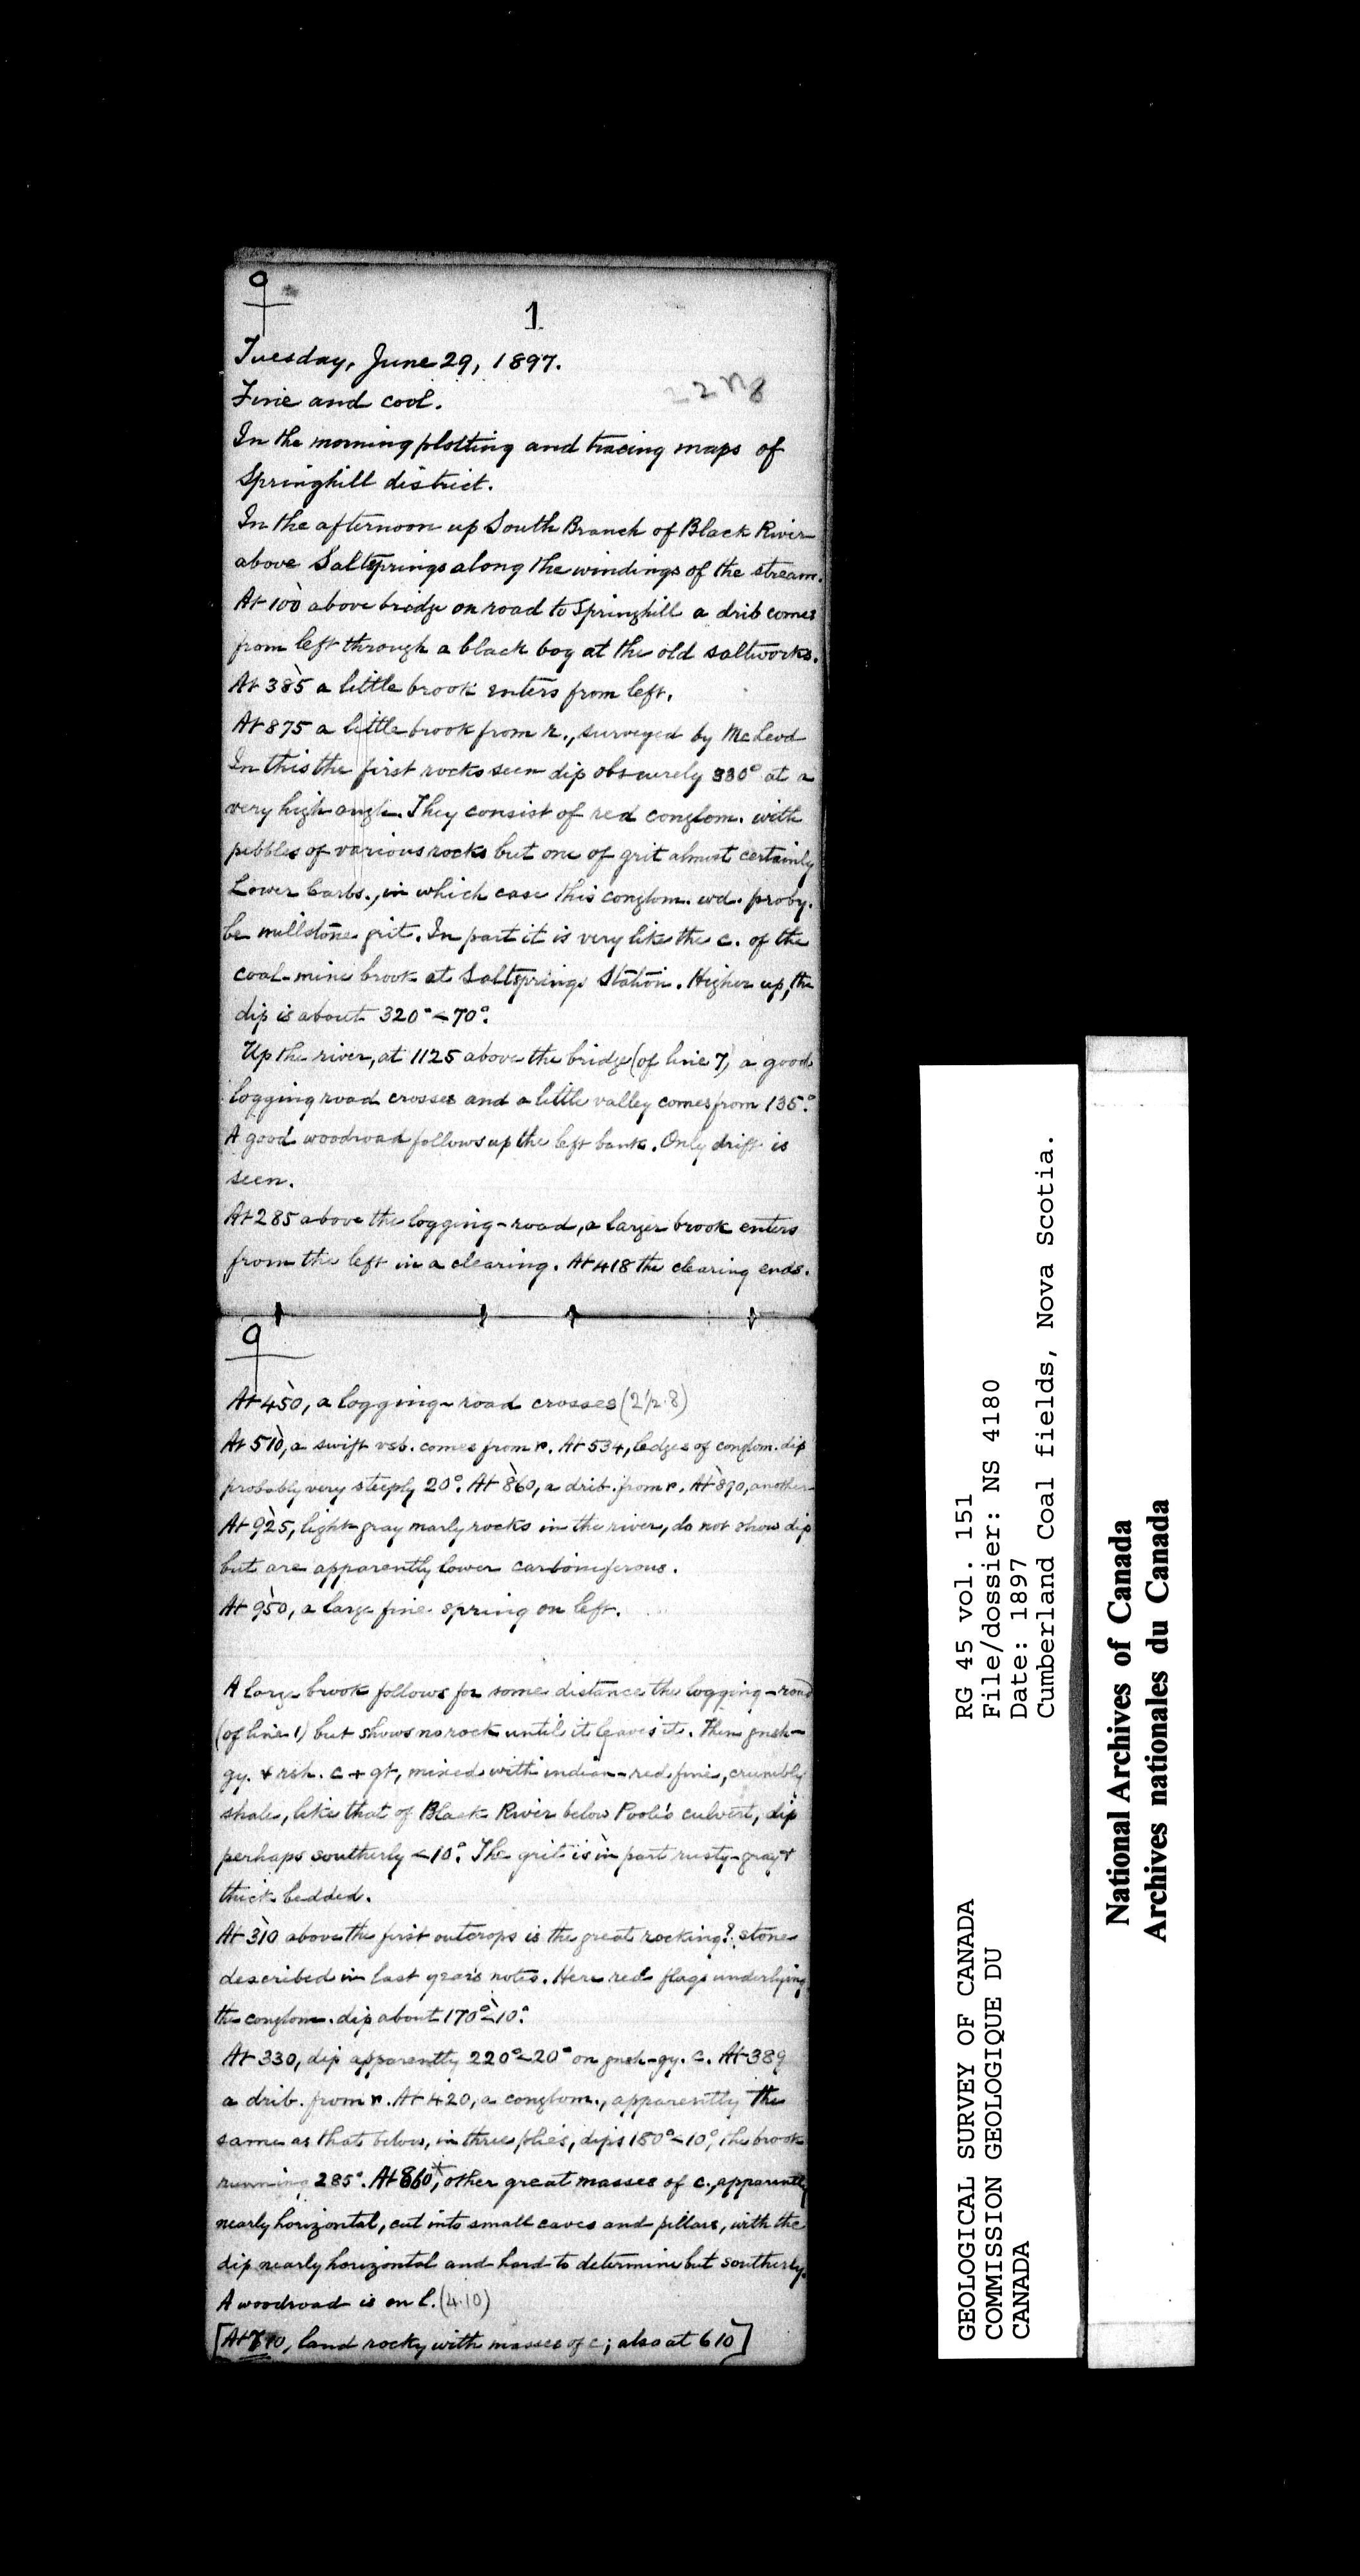 1
Tuesday, June 29, 1897.
Fine and cool.
In the morning plotting and tracing maps of
Springhill district.
In the afternoon up South Branch of Black River
above Saltsprings along the windings of the stream.
At 100 above bridge on road to Springhill a drib comes
from left through a black bog at the old saltworks.
At 385 a little brook enters from left.
At 875 a little brook from r., surveyed by McLeod
In this the first rocks seen dip obscurely 330° at a
very high angle. They consist of red conglom. with
pebbles of various rocks but one of grit almost certainly
Lower Carb., in which case this conglom. wd. proby.
be millstone grit. In part it is very like the c. of the
coal-mine brook at Saltsprings Station. Higher up, the
dip is about 320°<70°.
Up the river, at 1125 above the bridge (of line 7) a good
logging road crosses and a little valley comes from 135°.
A good woodroad follows up the left bank. Only drift is
seen.
At 285 above the logging-road, a larger brook enters
from the left in a clearing. At 418 the clearing ends.
At 450, a logging-road crosses (2/p.8)
At 510, a swift vsb. comes from r. At 534, ledges of conglom. dip
probably very steeply 20°. At 860, a drib. from r. At 890, another
At 925, light gray marly rocks in the river, do not show dip
but are apparently lower carboniferous.
At 950, a large fine spring on left.
A large brook follows for some distance the logging-road
(of line 1) but shows no rock until it leaves it. Then gnsh-
gy. & rsh. c + gt, mixed with indian-red fine, crumbly
shale, like that of Black River below Poole's culvert, dip
perhaps southerly <10°. The grit is in part rusty-gray &
thick bedded.
At 310 above the first outcrops is the great rocking? stone
described in last year's notes. Here red flags underlying
the conglom. dip about 170°<10°.
At 330, dip apparently 220°<20° on gnsh-gy. c. At 389
a drib. from r. At 420, a conglom., apparently the
same as that below, in three plies, dips 180°<10°, the brook
running 285°. At 860*, other great masses of c., apparently
nearly horizontal, cut into small caves and pillars, with the
dip nearly horizontal and hard to determine but southerly.
A woodroad is on l. (4.10)
[At 710, land rocky with masses of c; also at 610]
RG 45 vol. 151
File/dossier: NS 4180
Date: 1897
Cumberland Coal fields, Nova Scotia.
GEOLOGICAL SURVEY OF CANADA
COMMISSION GEOLOGIQUE DU
CANADA
National Archives of Canada
Archives nationales du Canada